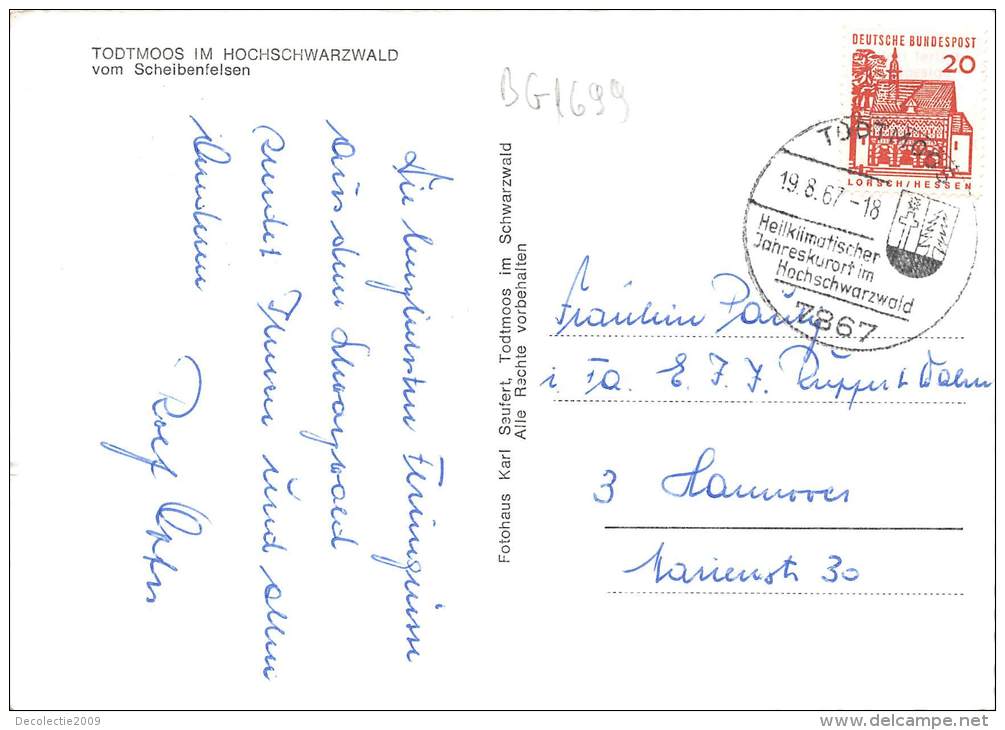 TODTMOOS IM HOCHSCHWARZWALD
vom Scheibenfelsen
BG1699
DEUTSCHE BUNDESPOST
20
LORSCH/HESSEN
TODTMOOS
19.8.67-18
Heilklimatischer
Jahreskurort im
Hochschwarzwald
7867
Die herzlichsten Feriengrüsse
aus dem Schwarzwald
sendet Ihnen und allen
Anderen
Rolf
Fotohaus Karl Seufert, Todtmoos im Schwarzwald
Alle Rechte vorbehalten
Fräulein Pauly
i. Fa. E. F. F. Ruppert
3 Hannover
Marienstr 30
Decolectie2009
www.delcampe.net